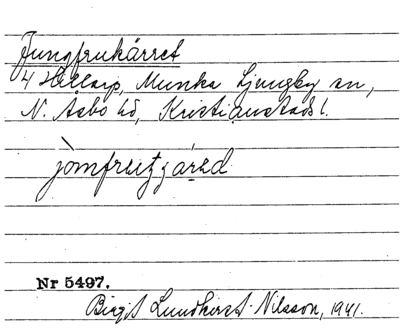 Jungfrukärret
4 Hillarp, Munka Ljungby sn,
N. Åsbo hd, Kristianstads l.
Nr 5497.
Birgit Lundkvist-Nilsson, 1941.